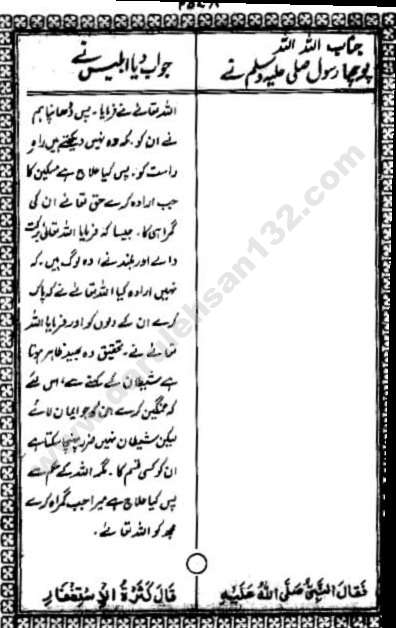 جناب اللہ اللہ
پوچھا رسول صلی علیہ وسلم نے
جواب دیا ابلیس نے
اللہ تعالےٰ نے فرمایا۔ پس ڈھانپا ہم
نے ان کو۔ کہ وہ نہیں دیکھتے ہیں راہ
راست کو۔ پس کیا علاج ہے مسکین کا
جب ارادہ کرے حق تعالےٰ ان کی
گمراہی کا۔ جیسا کہ فرمایا اللہ تعالیٰ برکت
والے اور بلند نے، وہ لوگ ہیں۔ کہ
نہیں ارادہ کیا اللہ تعالےٰ نے کہ پاک
کرے ان کے دلوں کو اور فرمایا اللہ
تعالےٰ نے۔ تحقیق وہ بھید ظاہر ہوتا
ہے شیطان کے کہنے سے، اس لئے
کہ غمگین کرے ان کو جو ایمان لائے
لیکن شیطان نہیں ضرر پہنچا سکتا ہے
ان کو کسی قسم کا۔ مگر اللہ کے حکم سے
پس کیا علاج ہے میرا جب گمراہ کرے
مجھ کو اللہ تعالےٰ۔
فَقَالَ النَّبِيُّ صَلَّى اللهُ عَلَيْهِ
قَالَ كَثْرَةُ الْاِسْتِغْفَارِ
www.darulehsan132.com